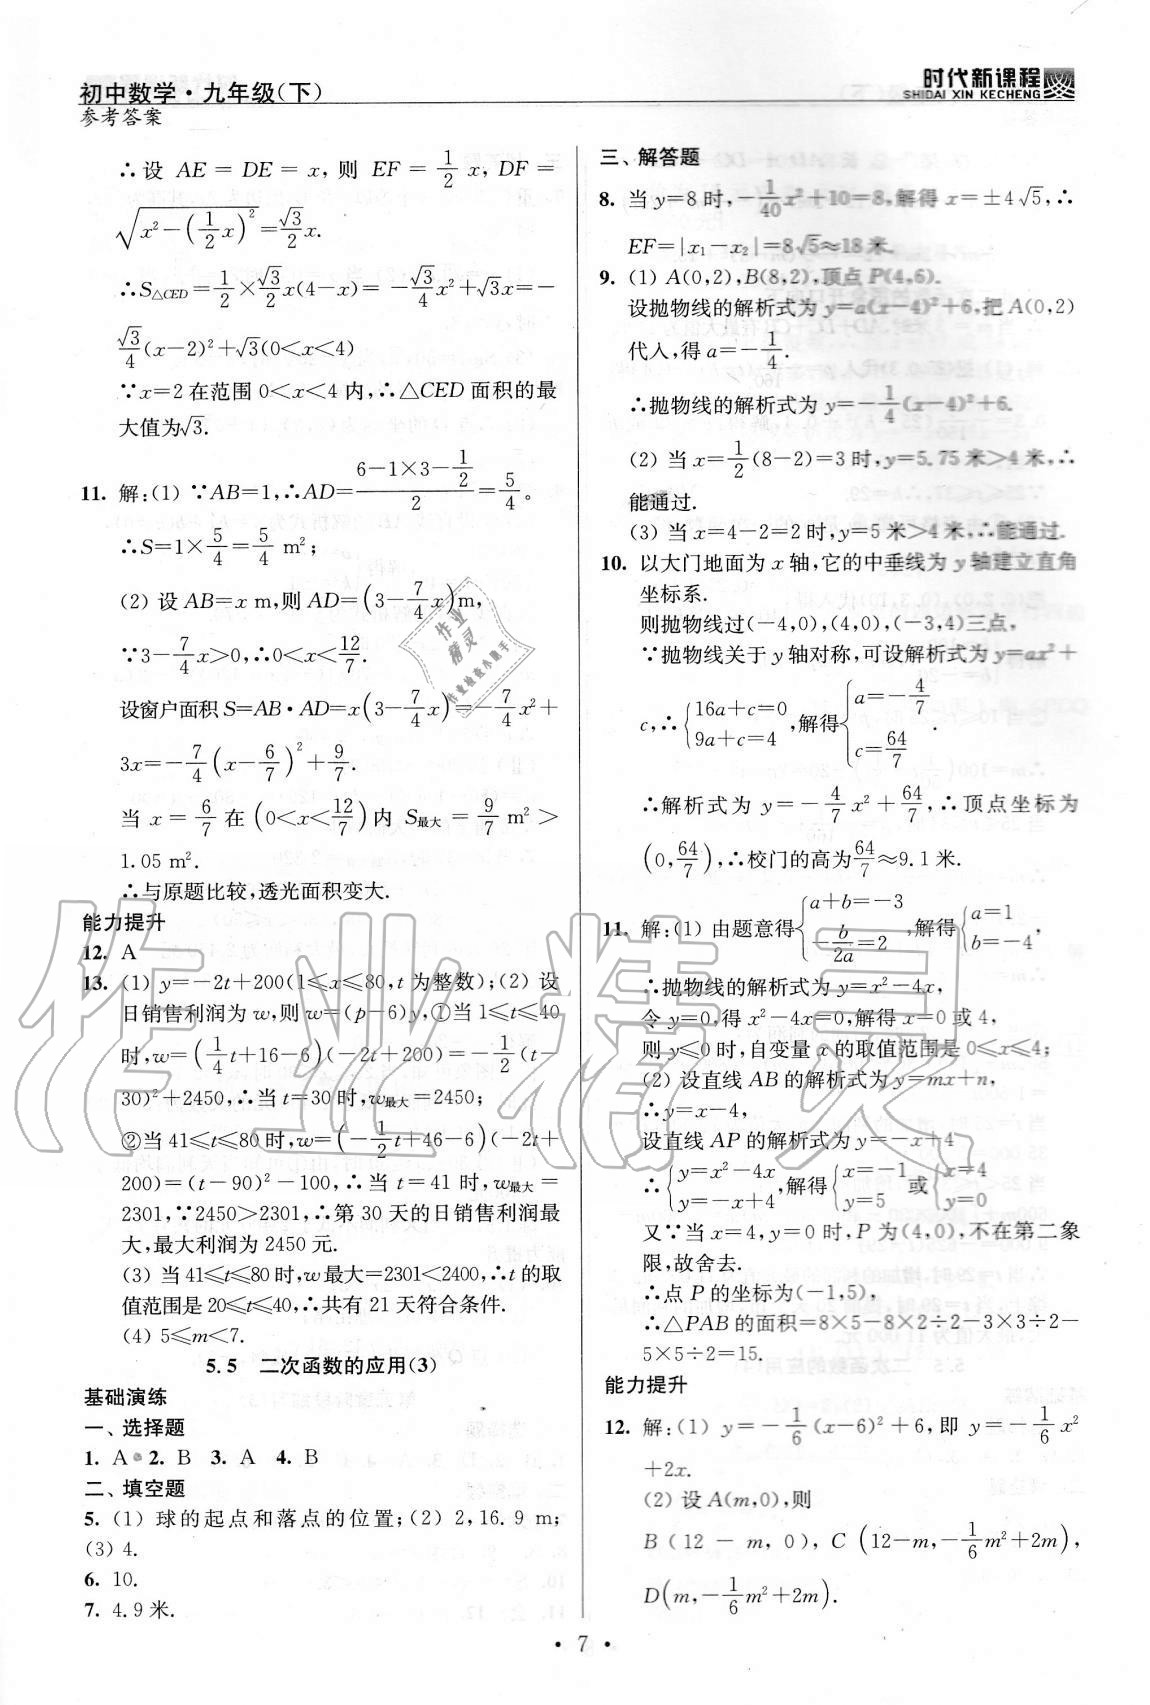 初中数学·九年级(下)
参考答案
时代新课程
SHIDAI XIN KECHENG
∴设 AE = DE = x, 则 EF = 1/2 x, DF =
√(x²-(1/2 x)²)=√3/2 x.
∴S△CED=1/2×√3/2 x(4-x)= -√3/4 x²+√3x=-
√3/4(x-2)²+√3(0<x<4)
∵x=2 在范围 0<x<4 内,∴△CED 面积的最
大值为√3.
11. 解:(1) ∵AB=1,∴AD=(6-1×3-1/2)/2=5/4。
∴S=1×5/4=5/4 m²;
(2) 设 AB=x m,则 AD=(3-7/4 x)m,
∵3-7/4 x>0,∴0<x<12/7.
设窗户面积 S=AB·AD=x(3-7/4 x)=-7/4 x²+
3x=-7/4(x-6/7)²+9/7.
当 x=6/7 在(0<x<12/7)内 S最大=9/7 m²>
1.05 m².
∴与原题比较,透光面积变大.
能力提升
12. A
13. (1) y=-2t+200(1≤x≤80,t 为整数);(2) 设
日销售利润为 w,则 w=(p-6)y,①当 1≤t≤40
时,w=(1/4 t+16-6)(-2t+200)=-1/2(t-
30)²+2450,∴当 t=30 时,w最大=2450;
②当 41≤t≤80 时,w=(-1/2 t+46-6)(-2t+
200)=(t-90)²-100,∴当 t=41 时,w最大=
2301,∵2450>2301,∴第 30 天的日销售利润最
大,最大利润为 2450 元.
(3) 当 41≤t≤80 时,w最大=2301<2400,∴t 的取
值范围是 20≤t≤40,∴共有 21 天符合条件.
(4) 5≤m<7.
5.5 二次函数的应用(3)
基础演练
一、选择题
1. A 2. B 3. A 4. B
二、填空题
5. (1) 球的起点和落点的位置;(2) 2,16.9 m;
(3) 4.
6. 10.
7. 4.9 米.
三、解答题
8. 当 y=8 时,-1/40 x²+10=8,解得 x=±4√5,∴
EF=|x₁-x₂|=8√5≈18 米.
9. (1) A(0,2),B(8,2),顶点 P(4,6).
设抛物线的解析式为 y=a(x-4)²+6,把 A(0,2)
代人,得 a=-1/4.
∴抛物线的解析式为 y=-1/4(x-4)²+6.
(2) 当 x=1/2(8-2)=3 时,y=5.75 米>4 米,∴
能通过.
(3) 当 x=4-2=2 时,y=5 米>4 米,∴能通过.
10. 以大门地面为 x 轴,它的中垂线为 y 轴建立直角
坐标系.
则抛物线过(-4,0),(4,0),(-3,4)三点,
∵抛物线关于 y 轴对称,可设解析式为 y=ax²+
c,∴{16a+c=0 9a+c=4,解得{a=-4/7 c=64/7.
∴解析式为 y=-4/7 x²+64/7,∴顶点坐标为
(0,64/7),∴校门的高为64/7≈9.1 米.
11. 解:(1) 由题意得{a+b=-3 -b/2a=2,解得{a=1 b=-4,
∴抛物线的解析式为 y=x²-4x,
令 y=0,得 x²-4x=0,解得 x=0 或 4,
则 y≤0 时,自变量 x 的取值范围是 0≤x≤4;
(2) 设直线 AB 的解析式为 y=mx+n,
∴y=x-4,
设直线 AP 的解析式为 y=-x+4
∴{y=x²-4x y=-x+4,解得{x=-1 y=5 或{x=4 y=0
又∵当 x=4,y=0 时,P 为(4,0),不在第二象
限,故舍去.
∴点 P 的坐标为(-1,5),
∴△PAB 的面积=8×5-8×2÷2-3×3÷2-
5×5÷2=15.
能力提升
12. 解:(1) y=-1/6(x-6)²+6,即 y=-1/6 x²
+2x.
(2) 设 A(m,0),则
B(12-m, 0), C(12-m,-1/6 m²+2m),
D(m,-1/6 m²+2m).
· 7 ·
作业精灵
作业
精灵
作业检查小能手